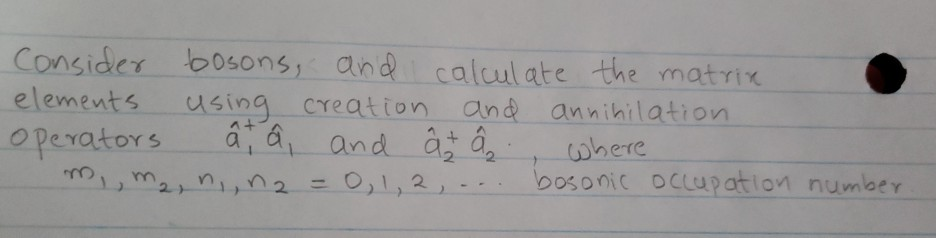 Consider bosons, and calculate the matrix
elements using creation and annihilation
operators â₁⁺ â₁ and â₂⁺ â₂ . , where
m₁, m₂, n₁, n₂ = 0, 1, 2, ... bosonic occupation number.